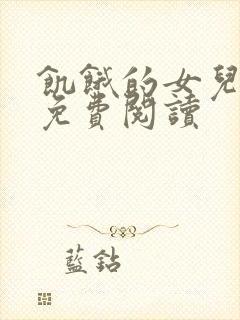 飢餓的女兒
免費閱讀
藍鈷